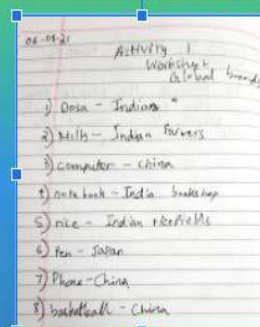 Activity 1
Worksheet
Global brands
1) Dosa - Indian
2) Milk - Indian Farmers
3) computer - china
4) note book - India bookshop
5) rice - Indian ricefields
6) Pen - Japan
7) Phone - China
8) basketball - China